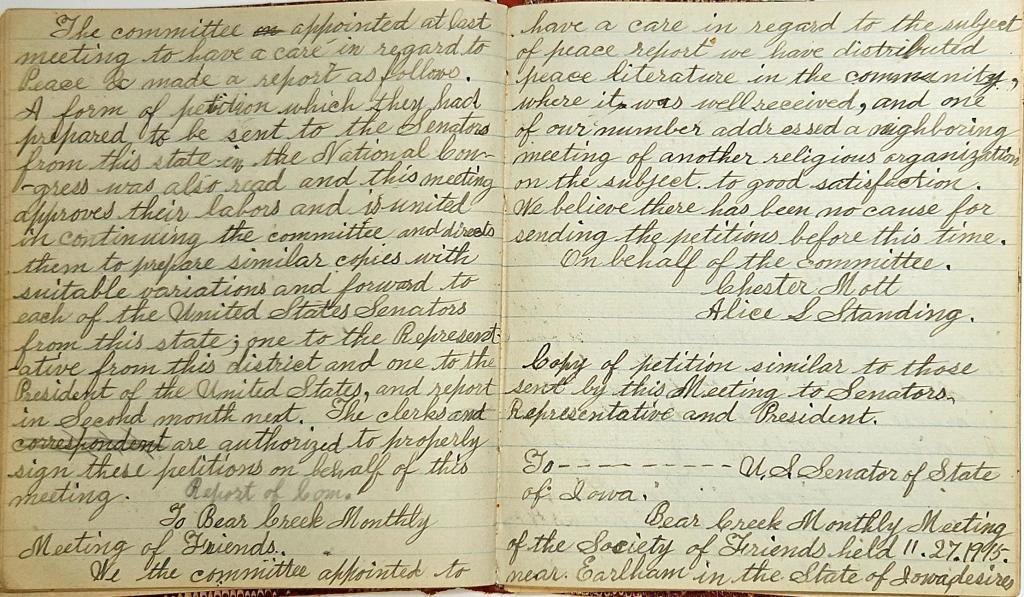 The committee on appointed at last
meeting to have a care in regard to
Peace & made a report as follows.
A form of petition which they had
prepared to be sent to the Senators
from this state in the National Con-
-gress was also read and this meeting
approves their labors and is united
in continuing the committee and directs
them to prepare similar copies with
suitable variations and forward to
each of the United States Senators
from this state; one to the Represent-
ative from this district and one to the
President of the United States, and report
in Second month next. The clerks and
correspondent are authorized to properly
sign these petitions on behalf of this
meeting. Report of Com.
To Bear Creek Monthly
Meeting of Friends.
We the committee appointed to
have a care in regard to the subject
of peace report we have distributed
peace literature in the community,
where it was well received, and one
of our number addressed a nighboring
meeting of another religious organization
on the subject to good satisfaction.
We believe there has been no cause for
sending the petitions before this time.
On behalf of the committee.
Chester Mott
Alice S Standing.
Copy of petition similar to those
sent by this Meeting to Senators,
Representative and President.
To---------- U.S. Senator of State
of Iowa.
Bear Creek Monthly Meeting
of the Society of Friends held 11. 27. 1915.
near Earlham in the State of Iowa, desires